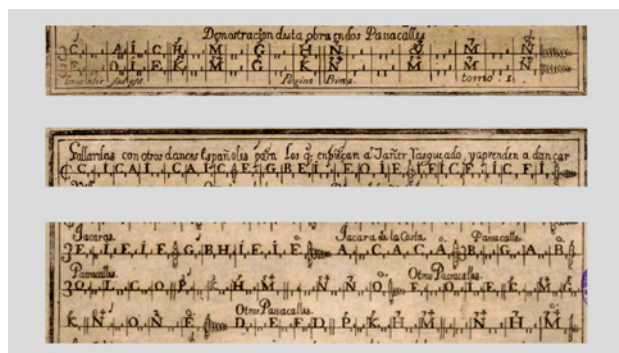 Demostracion desta obra en dos Passacalles
C A I C H M G H N & M N
O I E K M G K N M M N
Pagina Prima. tomo 1.
Gallardas con otros dances Españoles para los q̃ empieçan a Tañer Rasgueado, y aprenden a dançar
C C I C A I C A I C E G B E I E O I E I E I C E I C E I
Jacaras. Jacara de la Costa. Passacalle.
3 E I E I E G B H I E I E A C A C A 3 B G A B
Passacalles. Otros Passacalles.
3 O L C O P K H M N N O E O I E E M G
Otros Passacalles.
K N O N E D E E D P K H M N H M